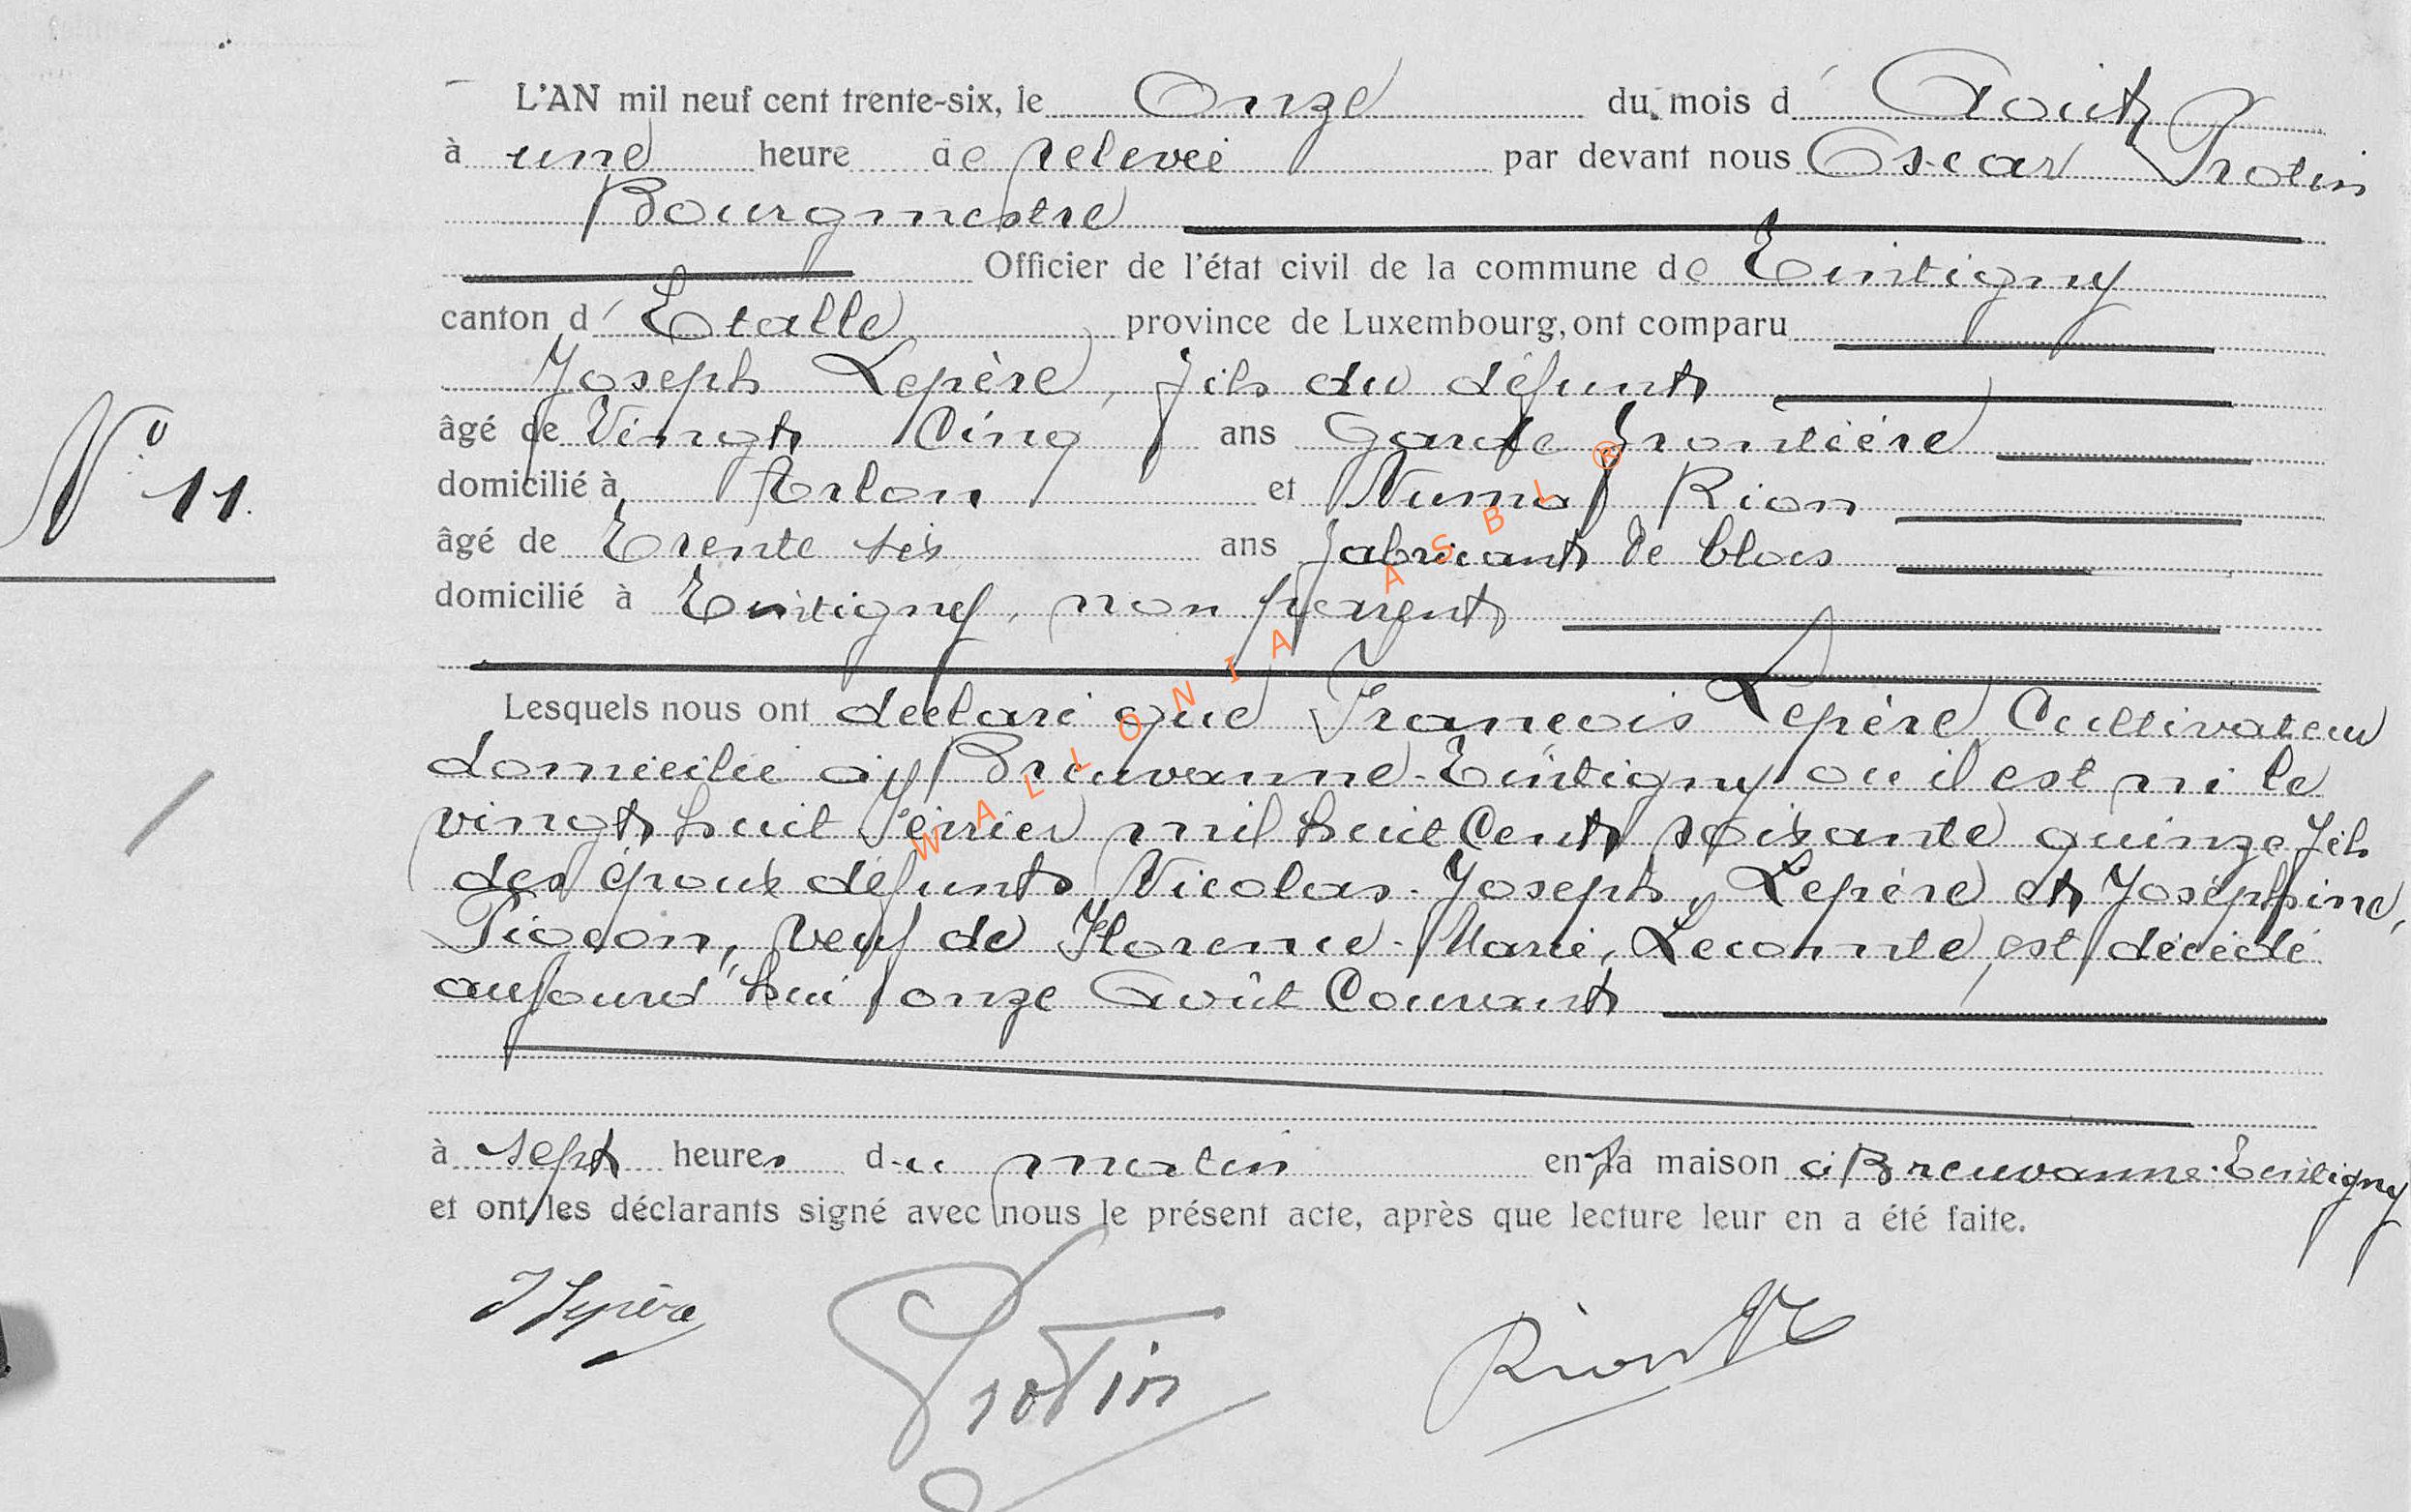 L'AN mil neuf cent trente-six, le Onze du mois d' Août
à une heure de relevée par devant nous Oscar Protin
Bourgmestre
Officier de l'état civil de la commune de Tintigny
canton d' Etalle province de Luxembourg, ont comparu
Joseph Lepère, fils du défunt
N° 11.
âgé de Vingt Cinq ans Garde frontière
domicilié à Arlon et Numa Rion
âgé de Trente six ans fabricant de blocs
domicilié à Tintigny, non parent
Lesquels nous ont déclaré que François Lepère Cultivateur
domicilié à Breuvanne-Tintigny ou il est né le
vingt huit février mil huit Cent soixante quinze fils
des époux défunts Nicolas-Joseph, Lepère et Joséphine,
veuf de Florence-Marie, Lecomte, est décédé
aujourd'hui onze Août Courant
à sept heures du matin en sa maison à Breuvanne-Tintigny
et ont les déclarants signé avec nous le présent acte, après que lecture leur en a été faite.
J Lepère Protin Rion
WALLONIA ASBL ®